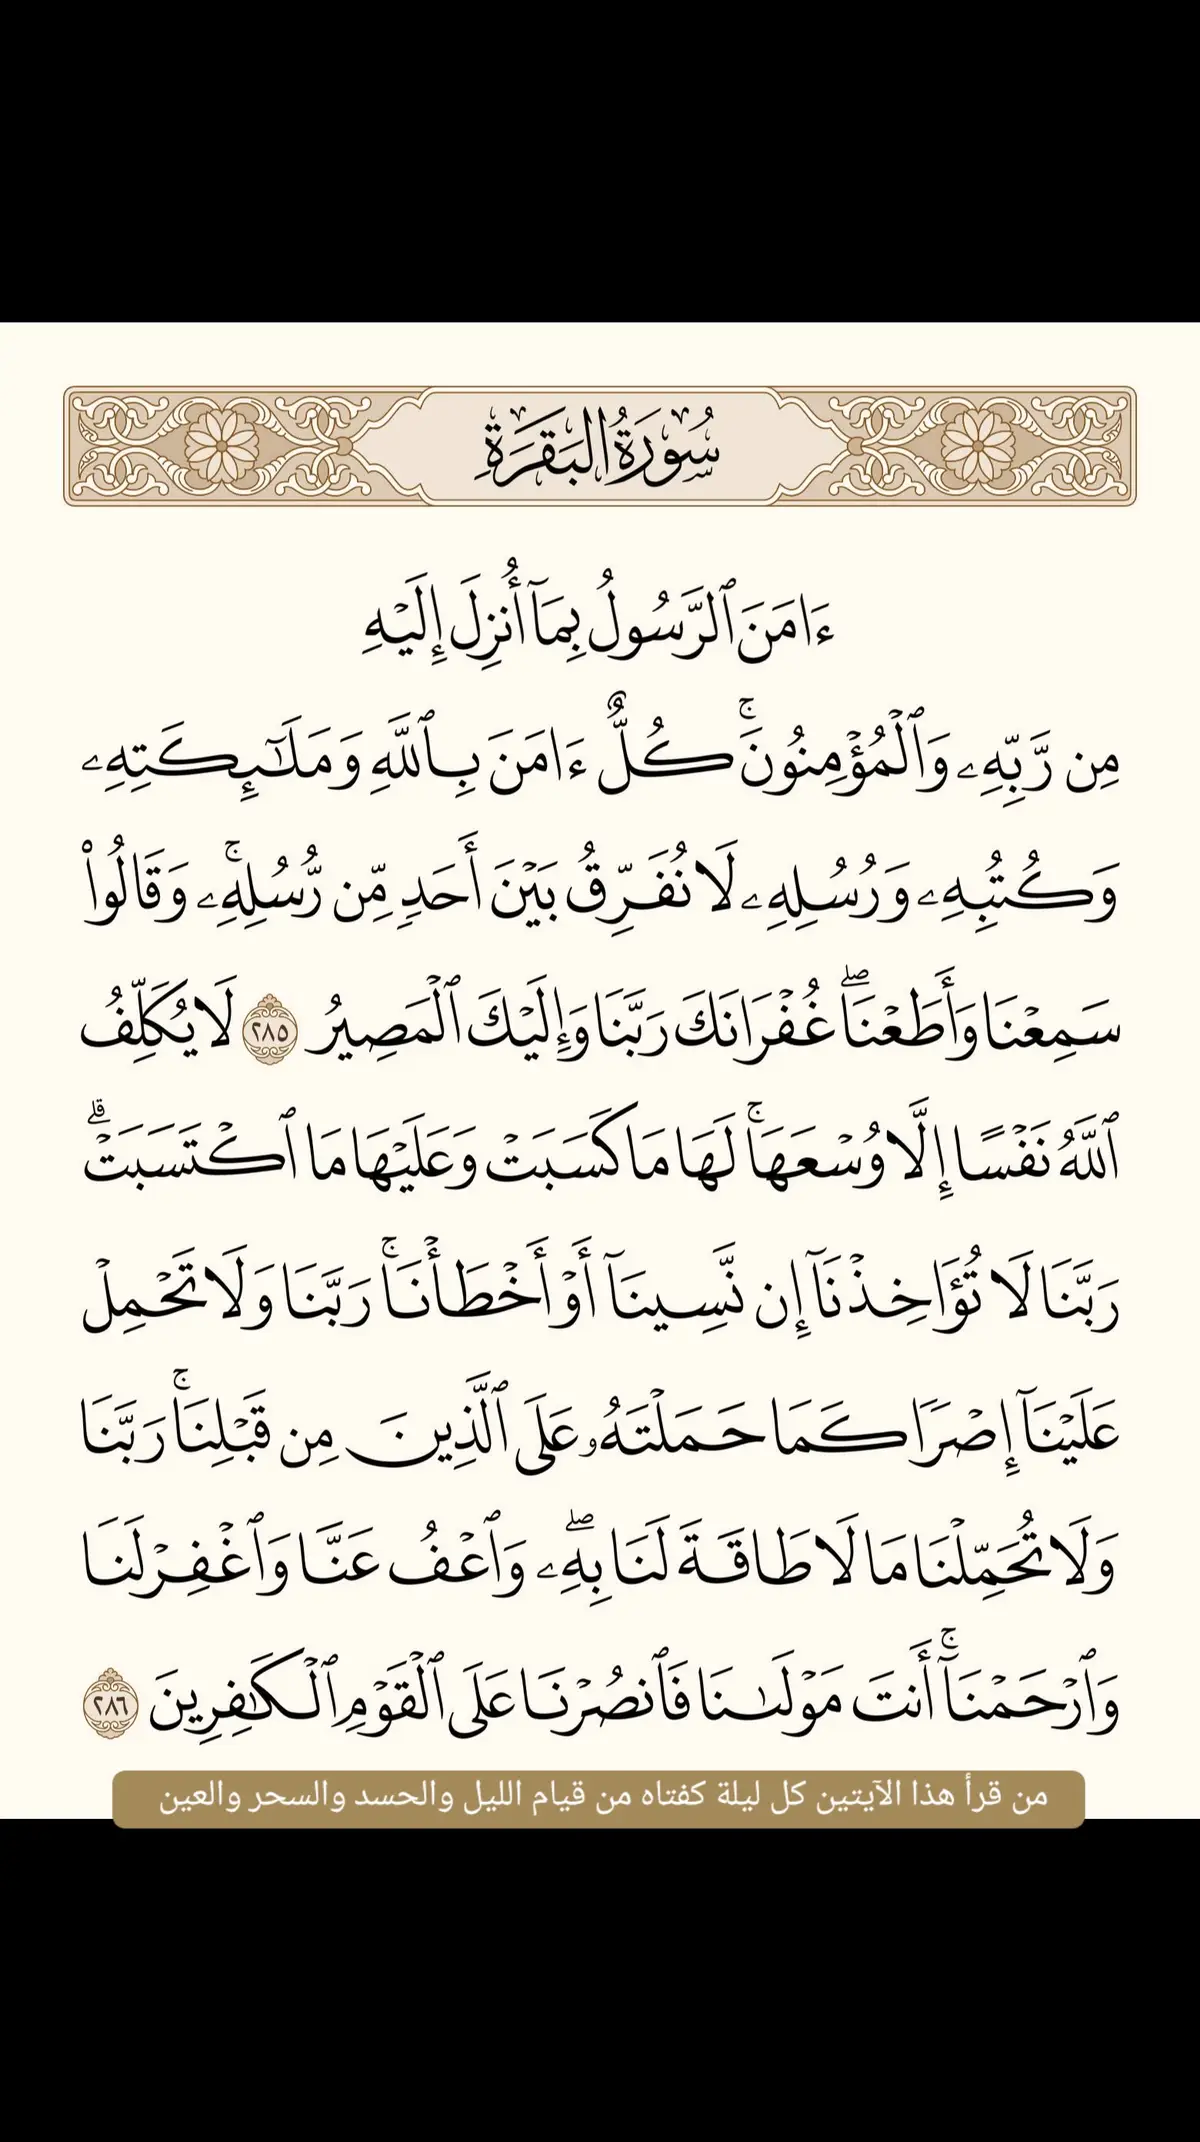 سُورَةُ البَقَرَةِ
ءَامَنَ ٱلرَّسُولُ بِمَآ أُنزِلَ إِلَيۡهِ
مِن رَّبِّهِۦ وَٱلۡمُؤۡمِنُونَۚ كُلٌّ ءَامَنَ بِٱللَّهِ وَمَلَـٰٓئِكَتِهِۦ
وَكُتُبِهِۦ وَرُسُلِهِۦ لَا نُفَرِّقُ بَيۡنَ أَحَدٖ مِّن رُّسُلِهِۦۚ وَقَالُواْ
سَمِعۡنَا وَأَطَعۡنَاۖ غُفۡرَانَكَ رَبَّنَا وَإِلَيۡكَ ٱلۡمَصِيرُ ٢٨٥ لَا يُكَلِّفُ
ٱللَّهُ نَفۡسًا إِلَّا وُسۡعَهَاۚ لَهَا مَا كَسَبَتۡ وَعَلَيۡهَا مَا ٱكۡتَسَبَتۡۗ
رَبَّنَا لَا تُؤَاخِذۡنَآ إِن نَّسِينَآ أَوۡ أَخۡطَأۡنَاۚ رَبَّنَا وَلَا تَحۡمِلۡ
عَلَيۡنَآ إِصۡرٗا كَمَا حَمَلۡتَهُۥ عَلَى ٱلَّذِينَ مِن قَبۡلِنَاۚ رَبَّنَا
وَلَا تُحَمِّلۡنَا مَا لَا طَاقَةَ لَنَا بِهِۦۖ وَٱعۡفُ عَنَّا وَٱغۡفِرۡ لَنَا
وَٱرۡحَمۡنَآۚ أَنتَ مَوۡلَىٰنَا فَٱنصُرۡنَا عَلَى ٱلۡقَوۡمِ ٱلۡكَٰفِرِينَ ٢٨٦
من قرأ هذا الآيتين كل ليلة كفتاه من قيام الليل والحسد والسحر والعين